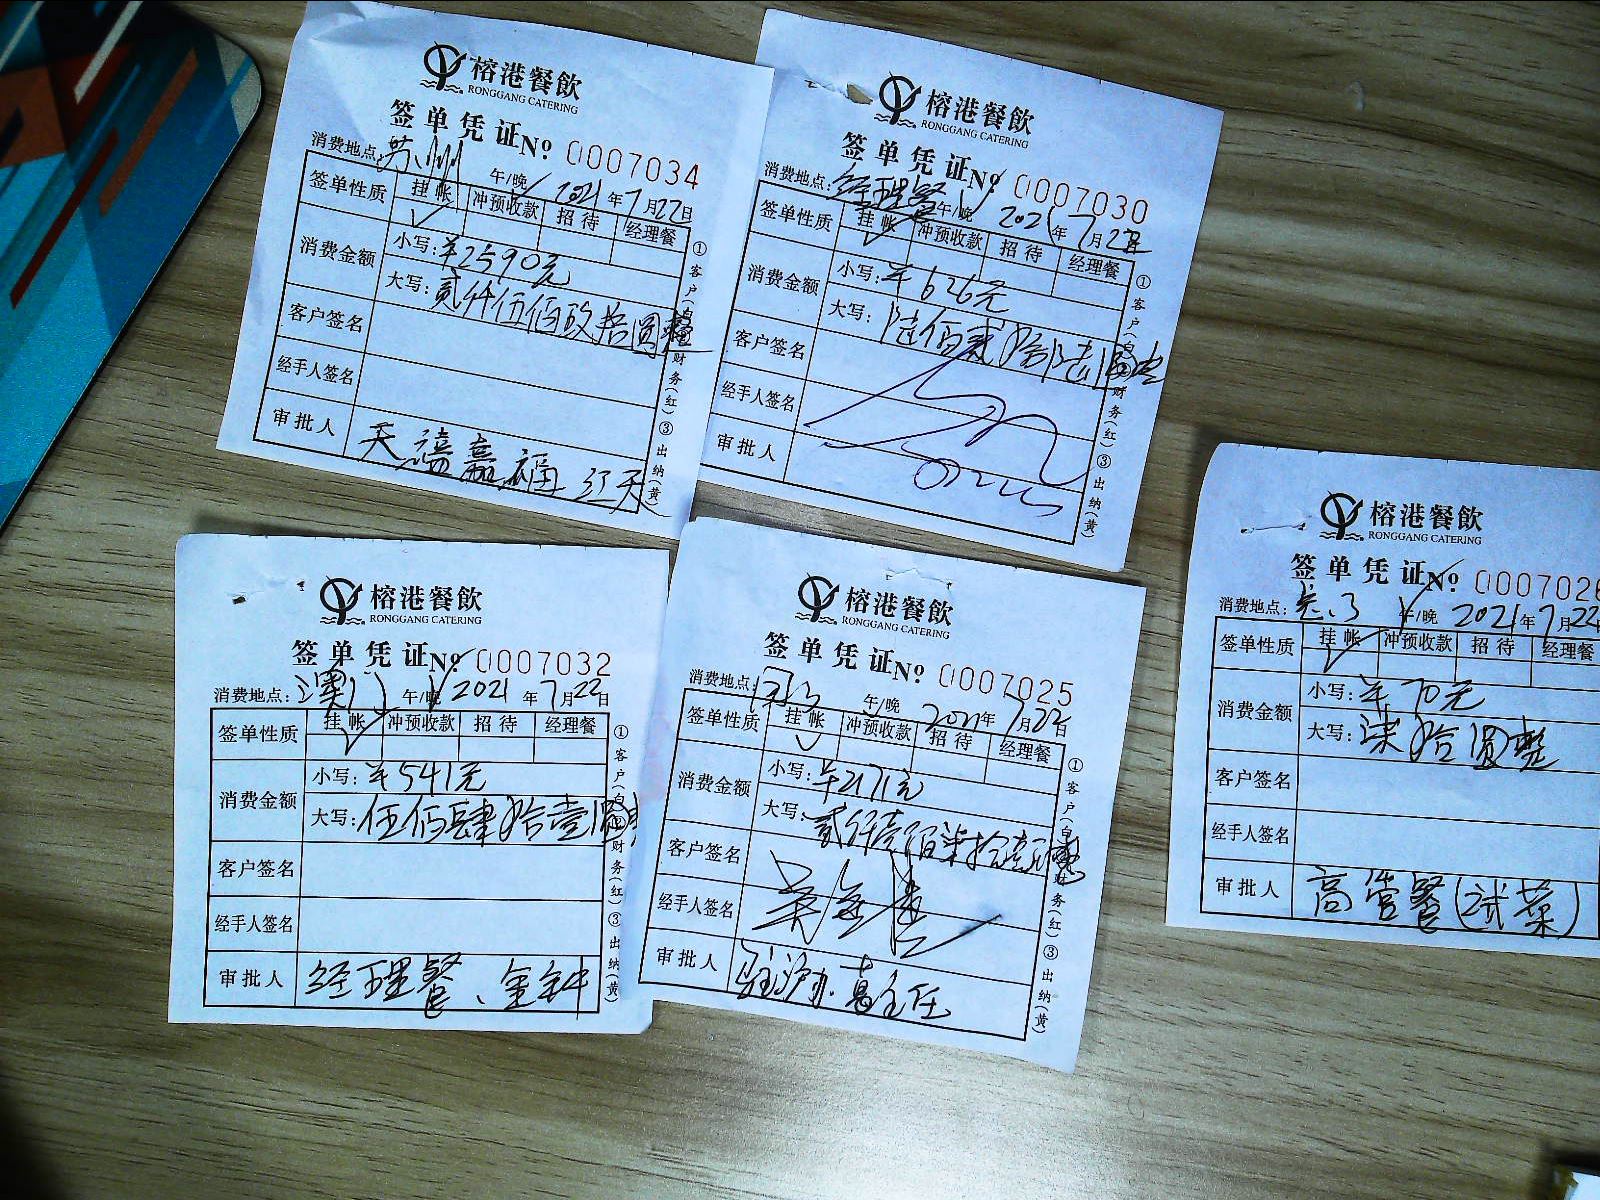 榕港餐飲
RONGGANG CATERING
签单凭证No 0007034
消费地点:苏州 午/晚 2021年7月22日
签单性质 挂帐 冲预收款 招待 经理餐
消费金额 小写:¥2590元
大写:贰仟伍佰玖拾圆整
客户签名
经手人签名
审批人 天禧嘉福 江天
①客户(白)
财务(红)③出纳(黄)
榕港餐飲
RONGGANG CATERING
签单凭证No 0007030
消费地点:经理餐 午/晚 2021年7月22日
签单性质 挂帐 冲预收款 招待 经理餐
消费金额 小写:¥626元
大写:陆佰贰拾陆圆整
客户签名
经手人签名
审批人
①客户(白)
财务(红)③出纳(黄)
榕港餐飲
RONGGANG CATERING
签单凭证No 0007026
消费地点: 午/晚 2021年7月22
签单性质 挂帐 冲预收款 招待 经理餐
消费金额 小写:¥70元
大写:柒拾圆整
客户签名
经手人签名
审批人 高管餐(试菜)
榕港餐飲
RONGGANG CATERING
签单凭证No 0007032
消费地点:澳门 午/晚 2021年7月22日
签单性质 挂帐 冲预收款 招待 经理餐
消费金额 小写:¥541元
大写:伍佰肆拾壹圆整
客户签名
经手人签名
审批人 经理餐、金钟
①客户(白)
财务(红)③出纳(黄)
榕港餐飲
RONGGANG CATERING
签单凭证No 0007025
消费地点: 午/晚 2021年7月22日
签单性质 挂帐 冲预收款 招待 经理餐
消费金额 小写:¥2171元
大写:贰仟壹佰柒拾壹元整
客户签名
经手人签名
审批人 驻沪办.葛主任
①客户(白)
财务(红)③出纳(黄)